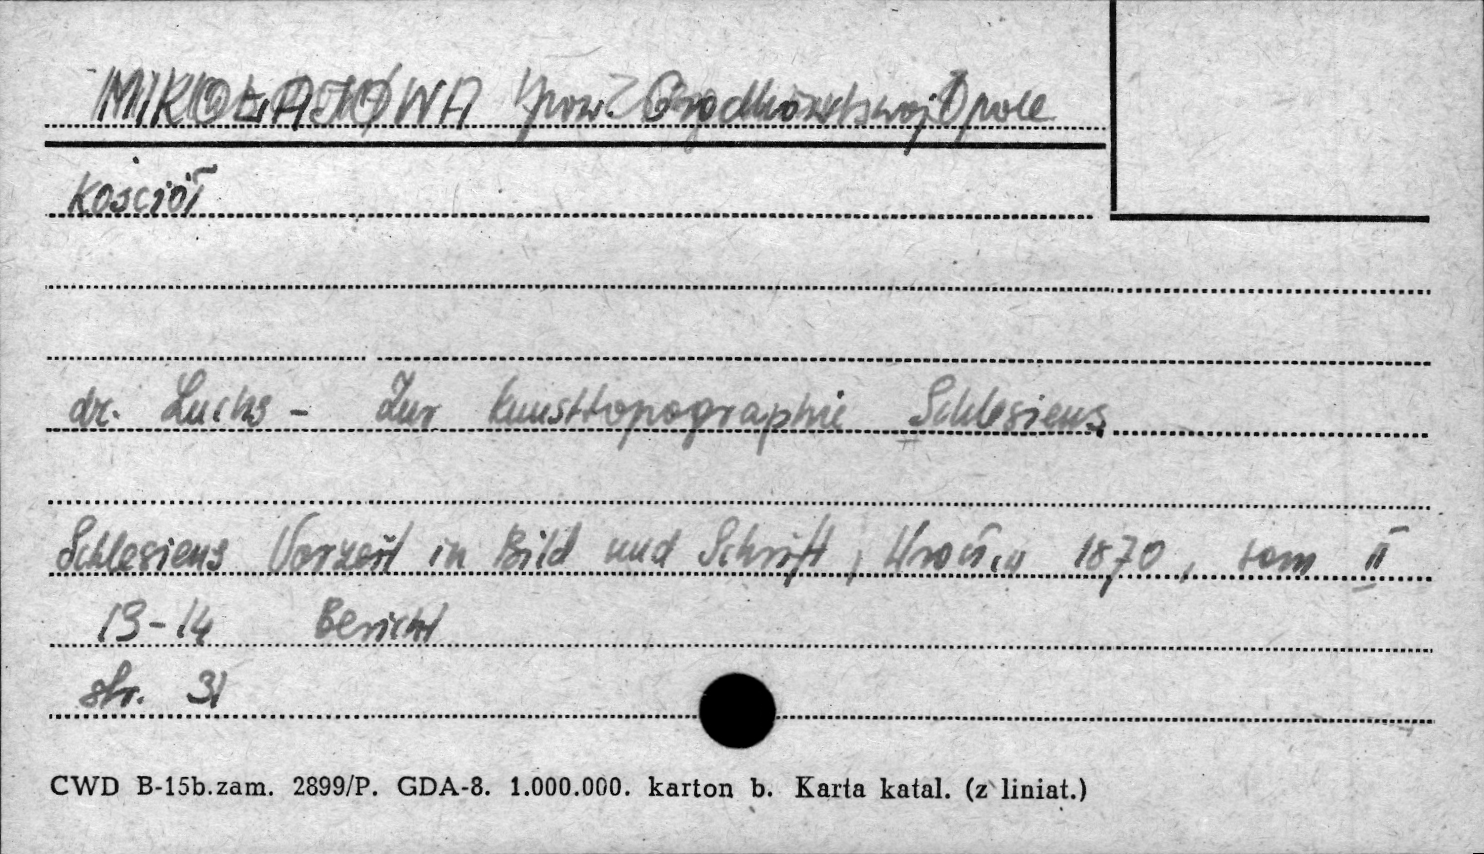 MIKOŁAJOWA pow. Grodków woj. Opole
Kościół
dr. Luchs - Zur Kunsttopographie Schlesiens
Schlesiens Vorzeit in Bild und Schrift, Wrocław 1870, tom II
13-14 Bericht
str. 31
CWD B-15b.zam. 2899/P. GDA-8. 1.000.000. karton b. Karta katal. (z liniat.)